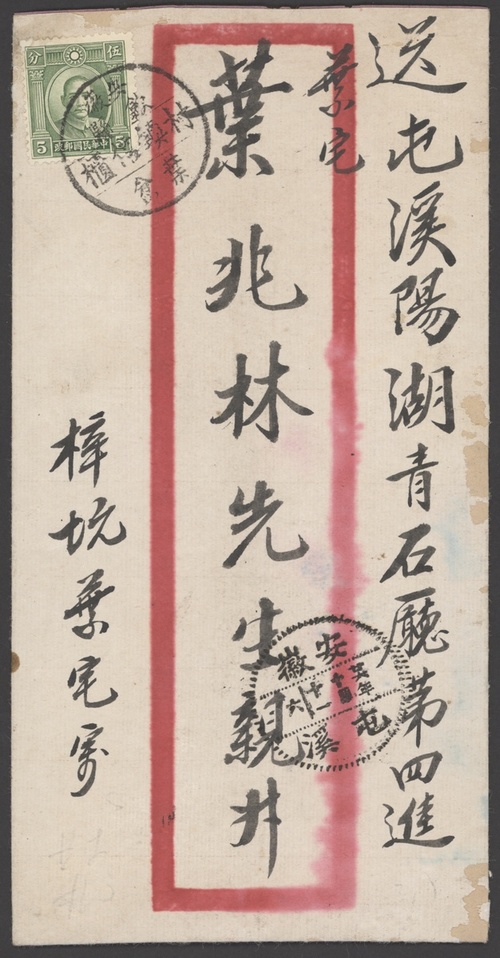 送屯溪陽湖青石廳第四進
葉宅
葉兆林先生親升
梓坑葉宅寄
伍分
5 中華民國郵政 5
安徽
屯溪